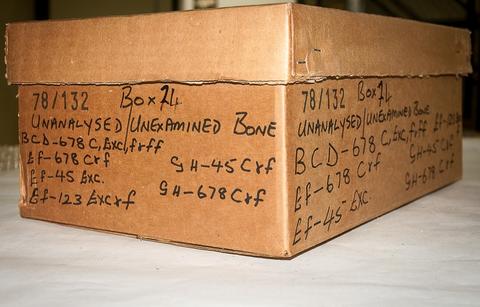 78/132 Box 74
UNANALYSED/UNEXAMINED BONE
BCD-678 C, Exc, frff
Ef-678 Crf GH-45 Crf
Ef-45 Exc.
Ef-123 Excrf GH-678 Crf
78/132 Box 74
UNANALYSED/UNEXAMINED BONE
BCD-678 C, Exc, frff
Ef-678 Crf GH-45 Crf
Ef-45 Exc. GH-678 Crf